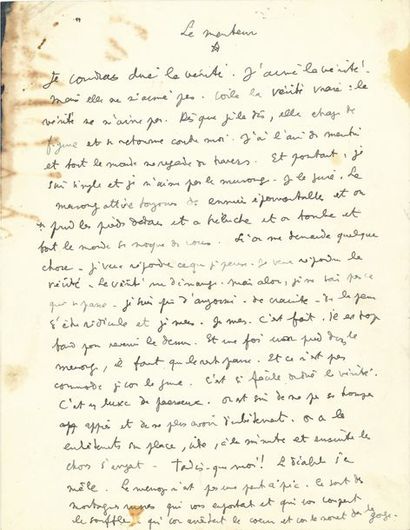 Le menteur
Je voudrais dire la vérité. J'aime la vérité.
Mais elle ne m'aime pas. Voilà la vérité vraie : la
vérité ne m'aime pas. Dès que je la dis, elle change de
figure et se retourne contre moi. J'ai l'air de mentir
et tout le monde me regarde de travers. Et pourtant, je
suis simple et je n'aime pas le mensonge. Je le jure. Le
mensonge attire toujours des ennuis épouvantables et on
se prend les pieds dedans et on trébuche et on tombe et
tout le monde se moque de vous. Si on me demande quelque
chose - je veux répondre ce que je pense. Je veux répondre la
vérité. La vérité me démange. Mais alors, je ne sais pas ce
qui se passe. Je suis pris d'angoisse, de crainte, de la peur
d'être ridicule et je mens. Je mens. C'est fait. Il est trop
tard pour revenir là-dessus. Et une fois un pied dans le
mensonge, il faut que le reste passe. Et ce n'est pas
commode je vous le jure. C'est si facile de dire la vérité.
C'est un luxe de paresseux. On est sûr de ne pas se tromper
après et de ne plus avoir d'embêtement. On a les
embêtements sur place, vite, à la minute et ensuite les
choses s'arrangent. Tandis que moi ! Le diable s'en
mêle. Le mensonge n'est pas une pente à pic. Ce sont des
montagnes russes qui vous emportent et qui vous coupent
le souffle, qui vous arrêtent le cœur et vous le nouent dans la gorge.